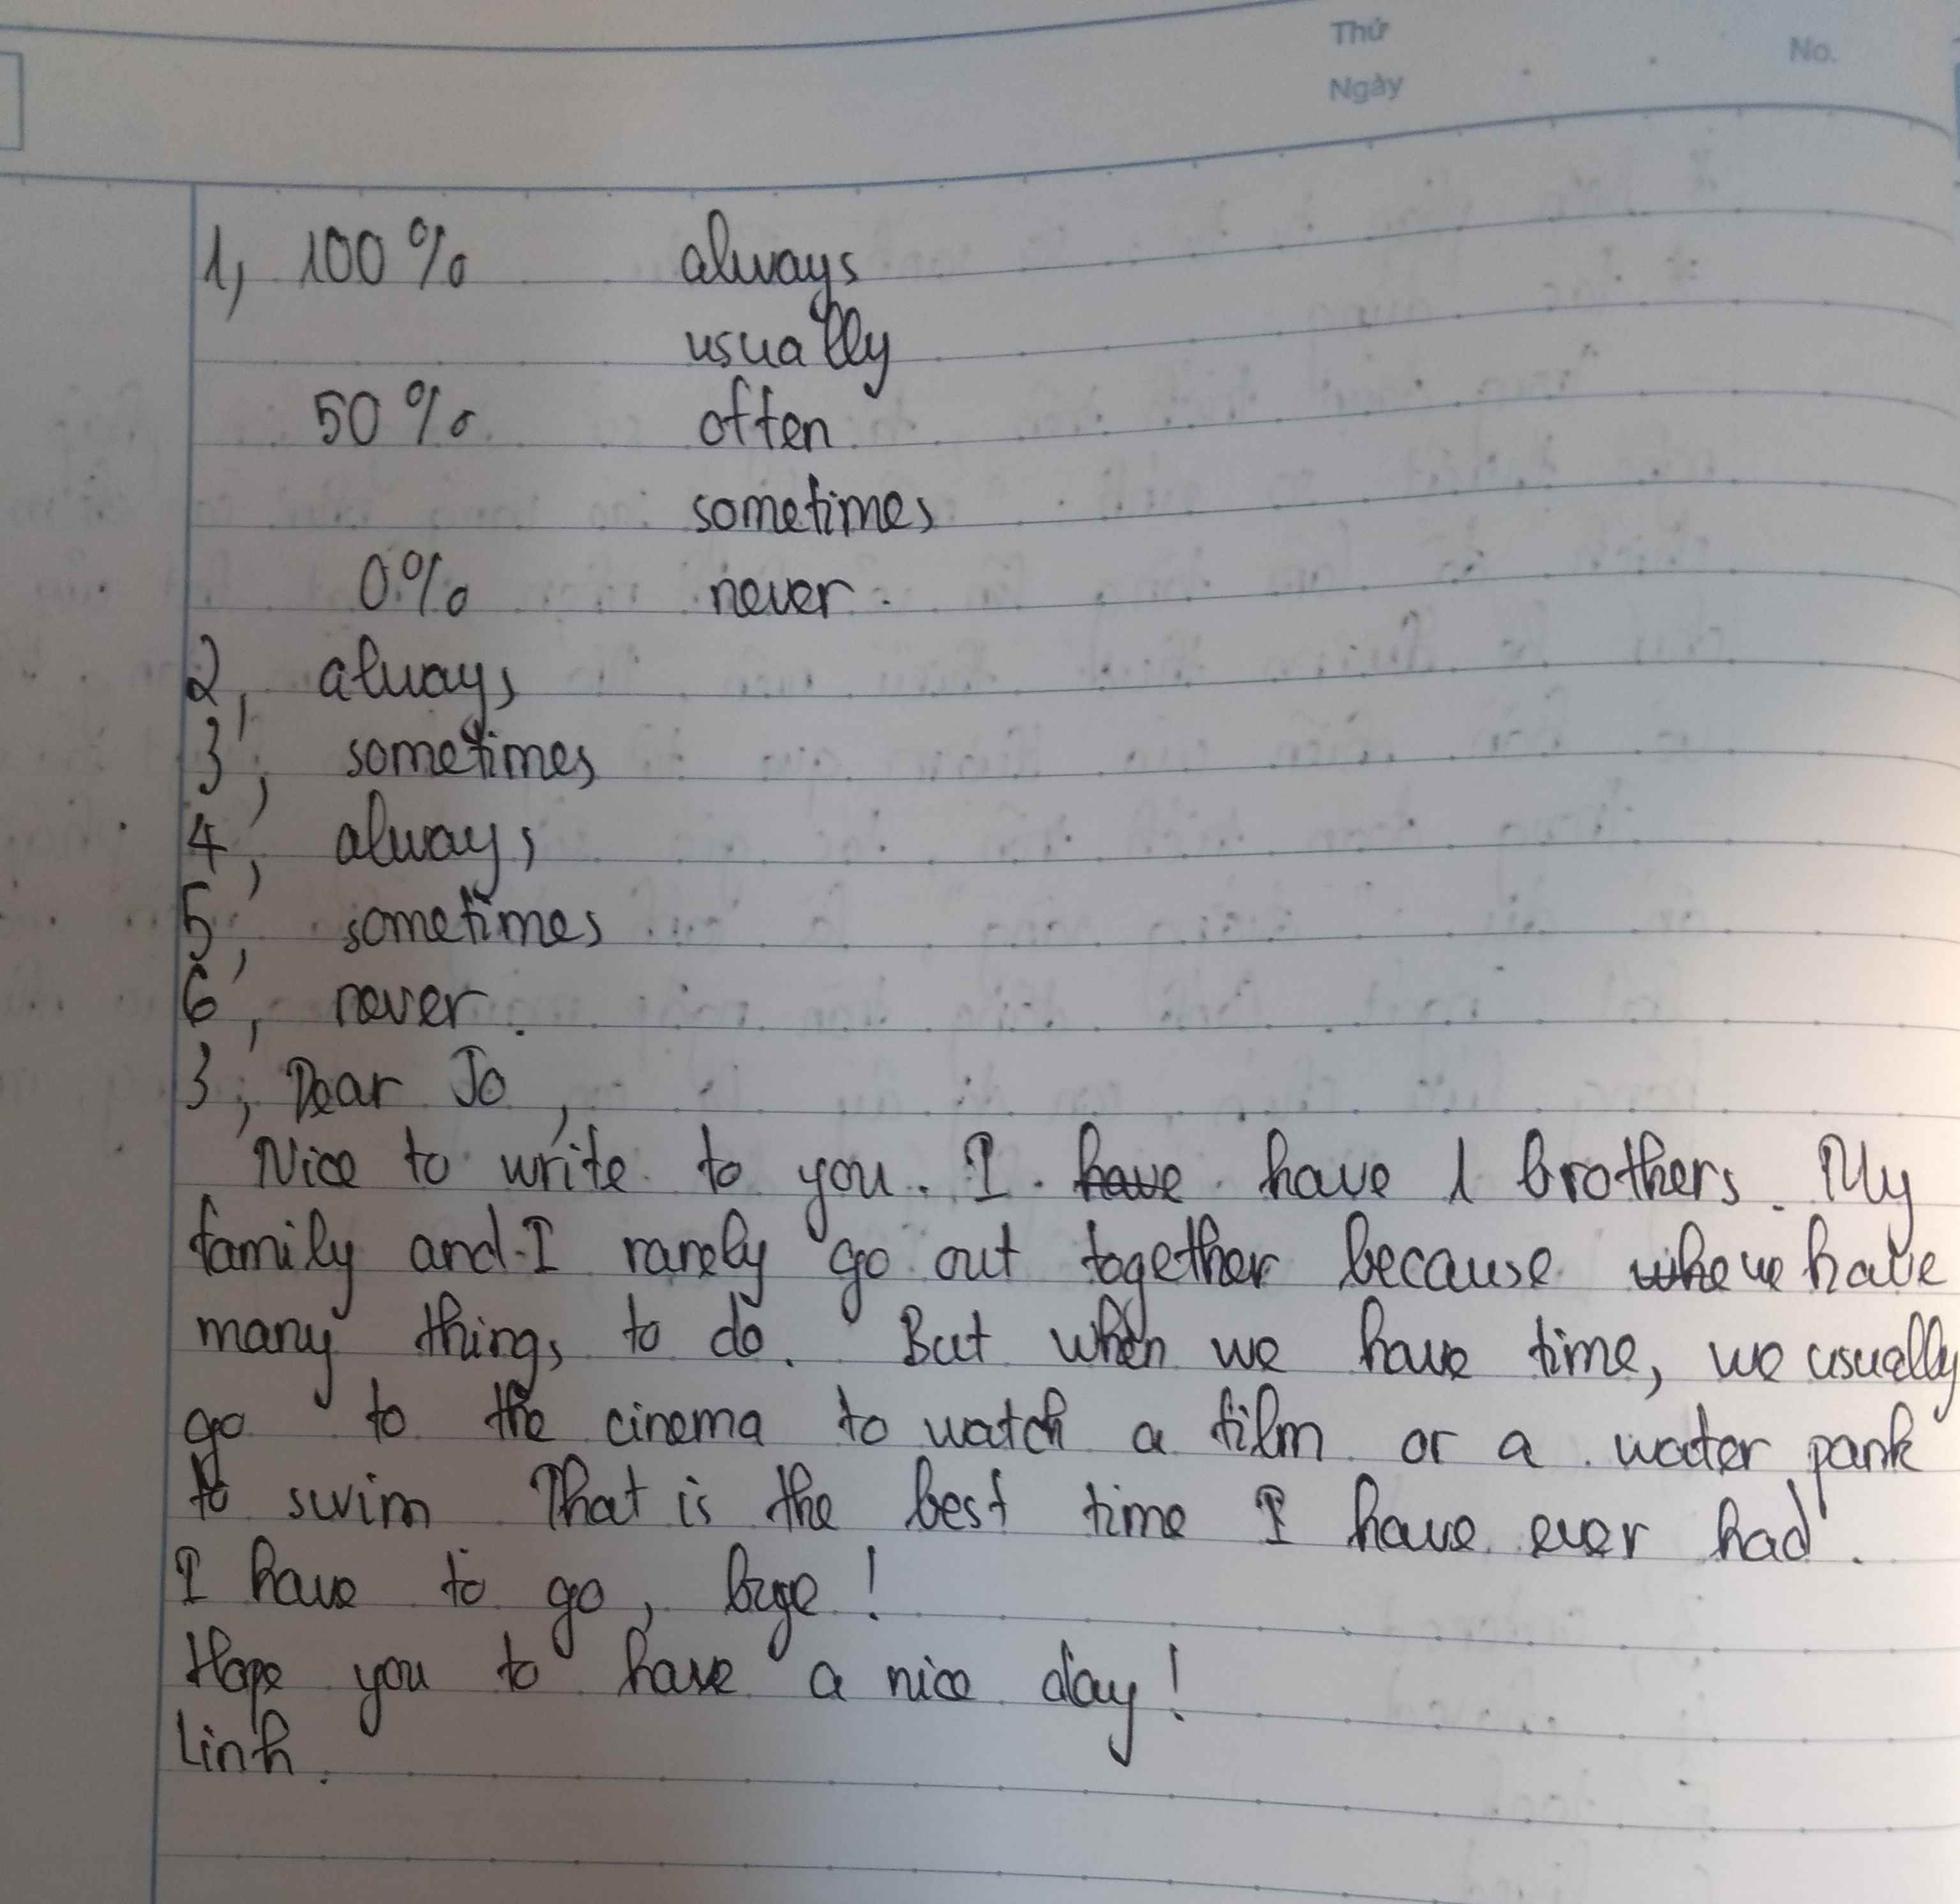 Thứ
No.
Ngày
1, 100% always
usually
50% often
sometimes
0% never.
2, always
3, sometimes
4, always
5, sometimes
6, never.
3, Dear Jo,
Nice to write to you. I have have 1 brothers. My
family and I rarely go out together because we have
many things to do. But when we have time, we usually
go to the cinema to watch a film or a water park
to swim That is the best time I have ever had.
I have to go, bye!
Hope you to have a nice day!
Linh.